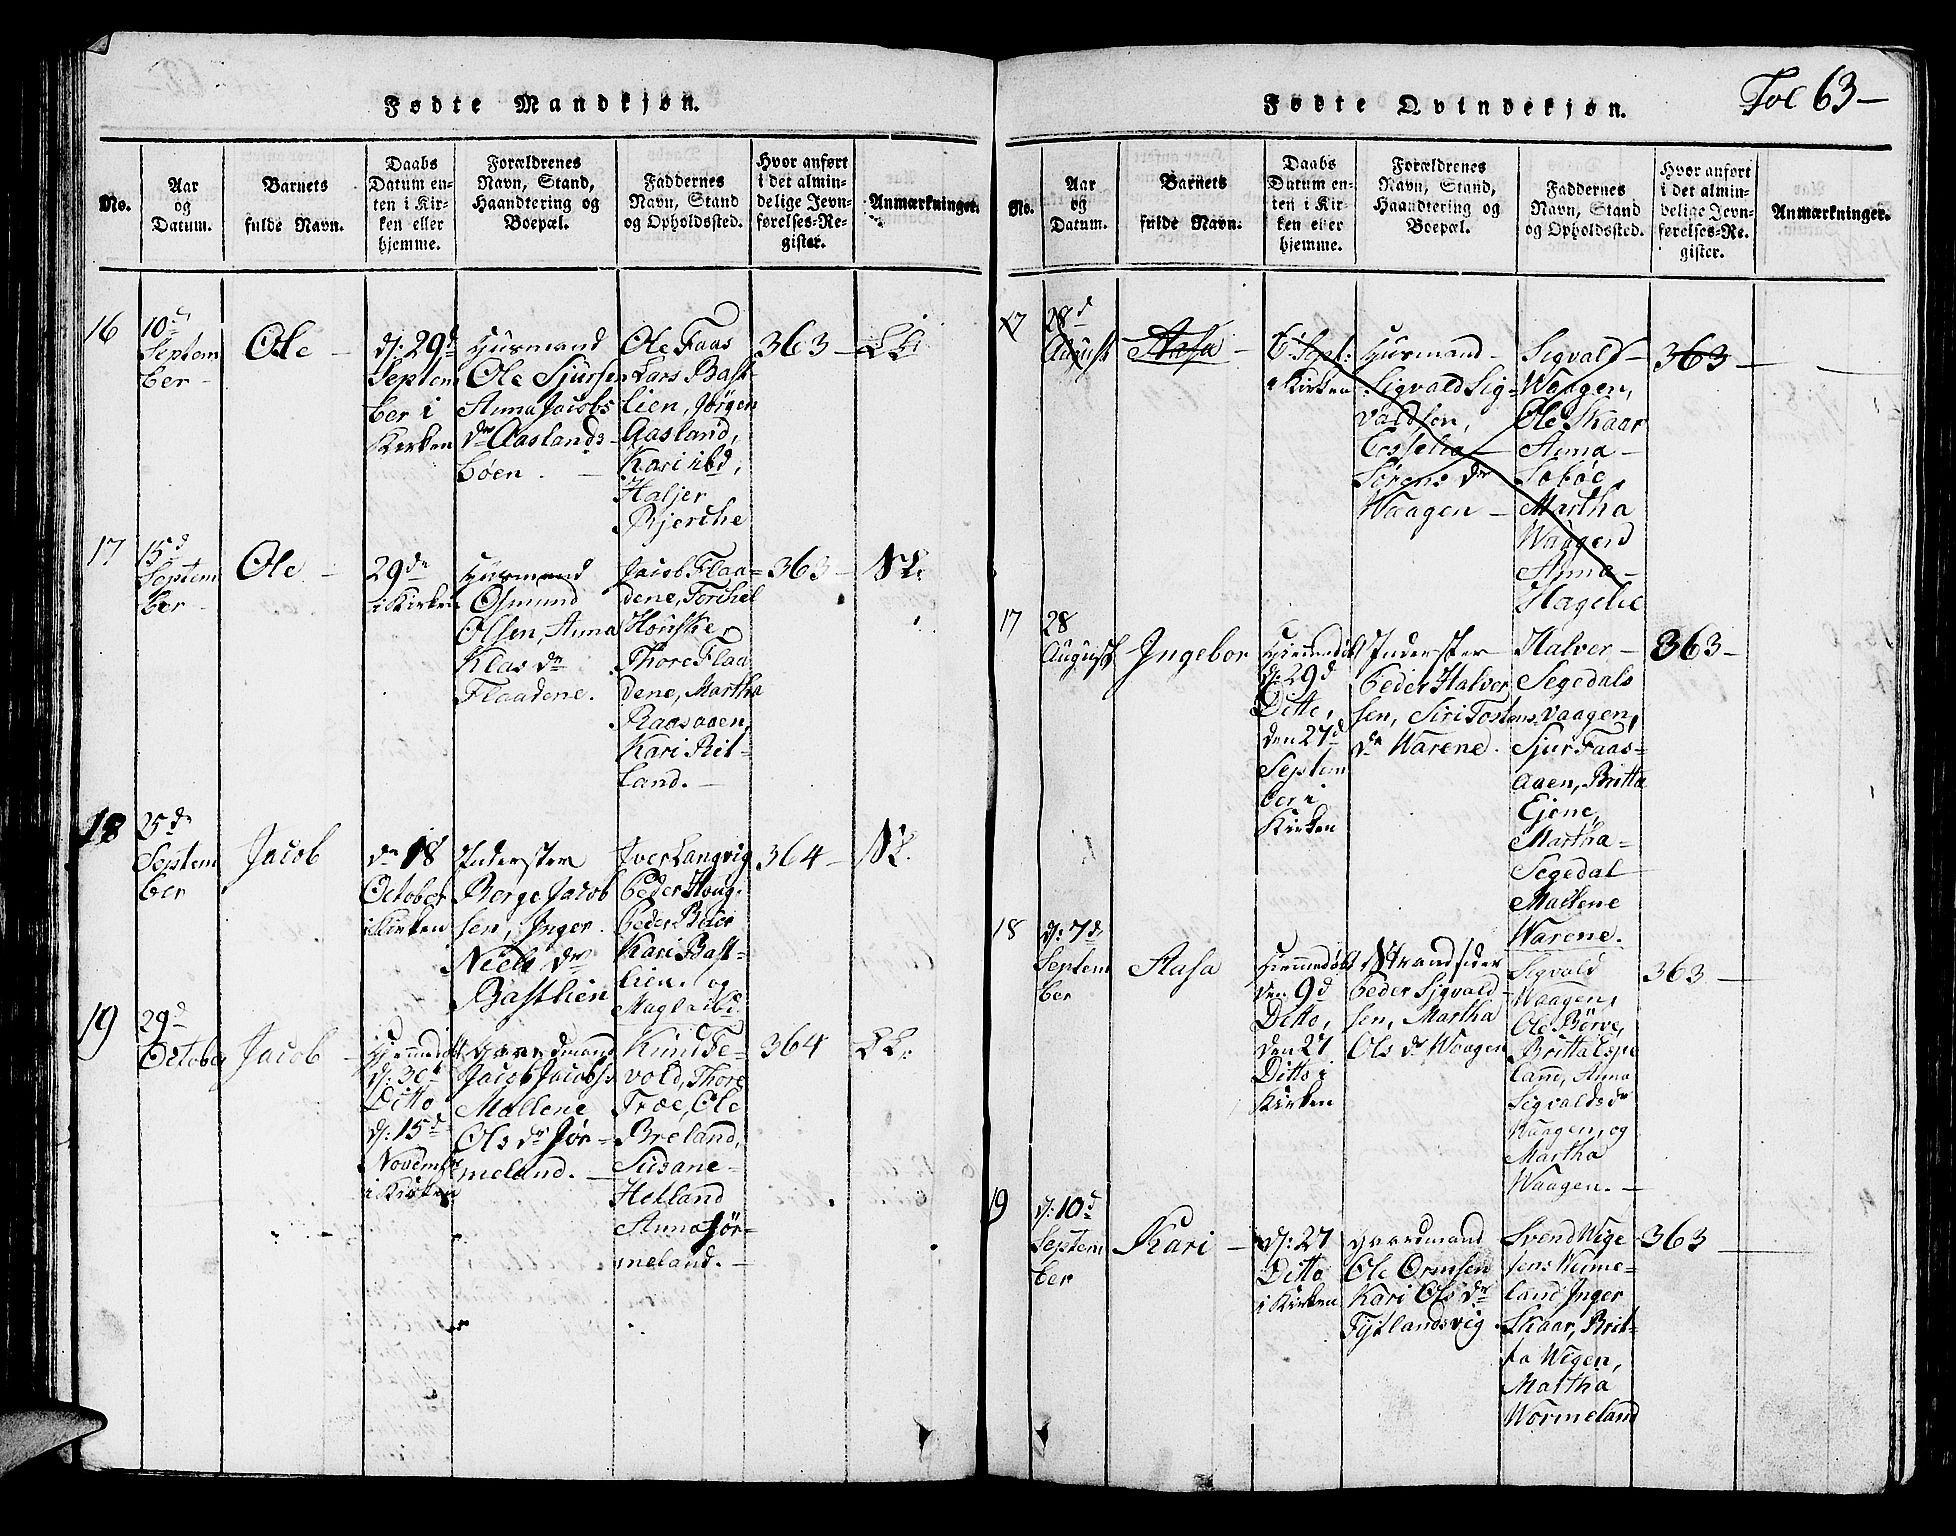 Fødte Mandkjøn.
No.
Aar
og
Datum.
Barnets
fulde Navn.
Daabs
Datum en-
ten i Kir-
ken eller
hjemme.
Forældrenes
Navn, Stand,
Haandtering og
Boepæl.
Faddernes
Navn, Stand
og Opholdssted.
Hvor anført
i det almin-
delige Jevn-
førelses-Re-
gister.
Anmærkninger.
16
10d
Septem
ber -
Ole -
d: 29d
Septem
ber i
Kirken
Huusmand
Ole Sjursen
Anna Jacobs
dr Aaslands-
bøen. -
Ole Faas
Lars Bast-
lien, Jørgen
Aasland,
Kari ibd,
Haljer
Bjerche
363 -
17
15d
Septem
ber -
Ole -
29de
i Kirken
Huusmand
Osmund
Olsen, Anna
Klas dr
Flaadene.
Jacob Flaa=
dene, Torchel
Houske,
Thore Flaa
dene, Martha
Raasaaen,
Kari Rit-
land. -
363 -
18
25de
Septem
ber
Jacob
dn 18
October
i Kirken
Inderster
Berge Jacob
sen, Inger
Niels dr
Bastlien
Iver Langvig
Peder Houg
Peder Beier
Kari Bast-
lien og
Magla ibd
364 -
19
29d
October
Jacob -
Hjemmedøbt
d: 30te
Ditto
d: 15d
Novembr
i Kirken
Gaardmand
Jacob Jacobs
Mallene
Ols dr Jør-
meland. -
Knud Te-
vold, Thore
Træe, Ole
Breland,
Susane -
Helland
Anna Jør-
meland. -
364
Fødte Qvindekjøn.
Fol 63 -
No.
Aar
og
Datum.
Barnets
fulde Navn.
Daabs
Datum en-
ten i Kir-
ken eller
hjemme.
Forældrenes
Navn, Stand,
Haandtering og
Boepæl.
Faddernes
Navn, Stand
og Opholdssted.
Hvor anført
i det almin-
delige Jevn-
førelses-Re-
gister.
Anmærkninger.
17
28d
August
Aasa -
6 Sept:
i Kirken
Huusmand -
Sigvald Sig-
valdsen,
Sørens dr
Waagen -
Sigvald -
Waagen,
Ole Skaar
Anna -
Søbøe,
Martha
Waagen
Anna -
Hagelie
363 -
17
28
August
Ingebor
Hjemmedøbt
d: 29d
Ditto,
den 27d
Septem
ber i
Kirken
Inderster
Peder Halver
sen, Siri Tostens
dr Warene.
Halver -
Segedals
vaagen,
Sjur Faas-
aaen, Britta
Ejene,
Martha -
Segedal
Mallene
Warene.
363 -
18
d: 7de
Septem
ber
Aasa
Hjemmedøbt
den 9d
Ditto,
den 27
Ditto i
Kirken
Strandsider
Peder Sigvald-
sen, Martha
Ols dr Waagen
Sigvald
Waagen,
Ole Børve,
Britta Espe
land, Anna
Sigvalds dr
Waagen, og
Martha
Waagen. -
363 -
19
d: 10d
Septem
ber
Kari -
d: 27
Ditto
i Kirken
Gaardmand
Ole Ormsen
Kari Ols dr
Fistlandsvig
Svend Wige
Jens Weime-
land Inger
Skaar, Brit-
ta Wigen,
Martha
Wormeland
363 -